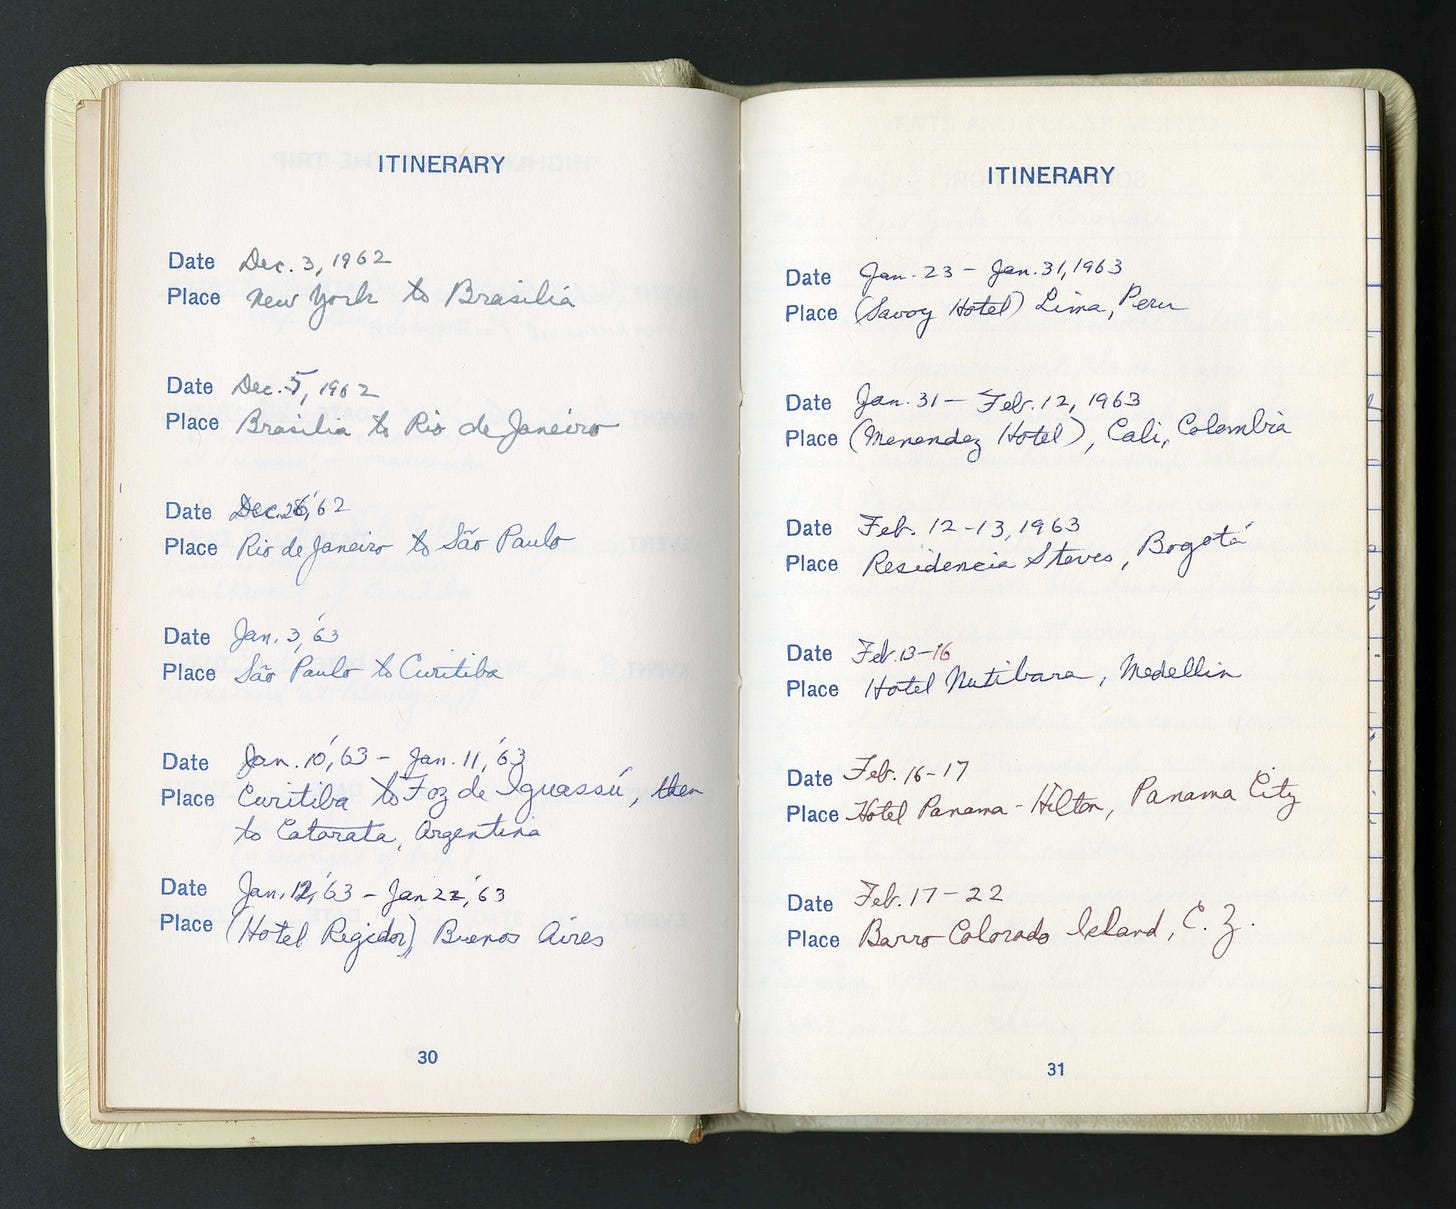 ITINERARY
Date Dec. 3, 1962
Place New York to Brasilia
Date Dec. 5, 1962
Place Brasilia to Rio de Janeiro
Date Dec. 26, '62
Place Rio de Janeiro to São Paulo
Date Jan. 3, '63
Place São Paulo to Curitiba
Date Jan. 10, '63 - Jan. 11, '63
Place Curitiba to Foz de Iguassú, then
to Catarata, Argentina
Date Jan. 12, '63 - Jan 22, '63
Place (Hotel Regidor) Buenos Aires
30
ITINERARY
Date Jan. 23 - Jan. 31, 1963
Place (Savoy Hotel) Lima, Peru
Date Jan. 31 - Feb. 12, 1963
Place (Menendez Hotel), Cali, Colombia
Date Feb. 12-13, 1963
Place Residencia Steves, Bogotá
Date Feb. 13-16
Place Hotel Nutibara, Medellin
Date Feb. 16-17
Place Hotel Panama-Hilton, Panama City
Date Feb. 17-22
Place Barro Colorado Island, C. Z.
31